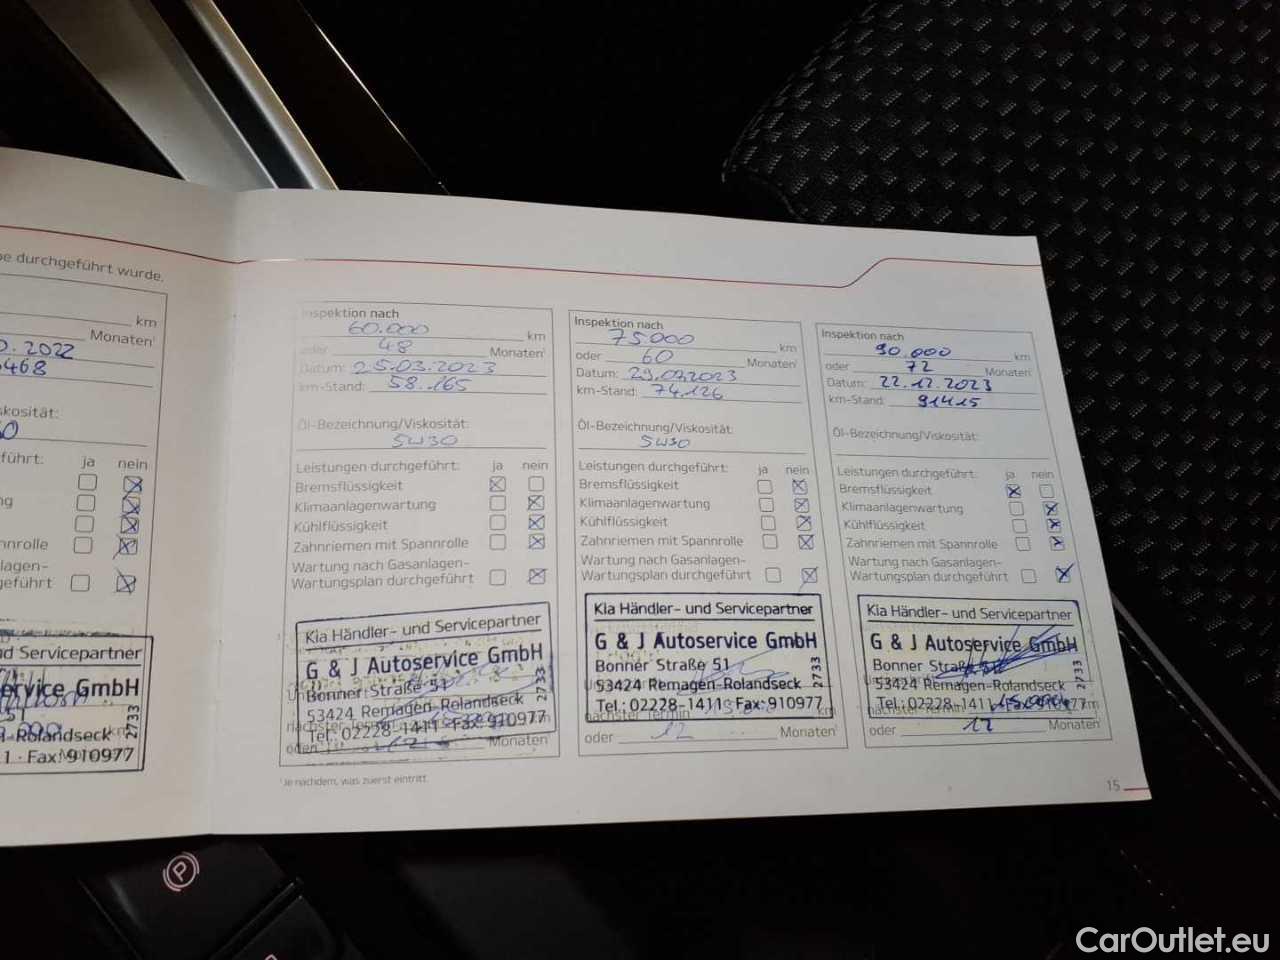 be durchgeführt wurde.
km
Monaten¹
0.2022
5468
skosität:
führt:
ja nein
ng
nnrolle
lagen-
geführt
nd Servicepartner
ervice GmbH
51
-Rolandseck
1 · Fax: 910977
2733
Inspektion nach
60.000 km
oder 48 Monaten¹
Datum: 25.03.2023
km-Stand: 58.165
Öl-Bezeichnung/Viskosität:
5W30
Leistungen durchgeführt: ja nein
Bremsflüssigkeit
Klimaanlagenwartung
Kühlflüssigkeit
Zahnriemen mit Spannrolle
Wartung nach Gasanlagen-
Wartungsplan durchgeführt
Kia Händler- und Servicepartner
G & J Autoservice GmbH
Bonner Straße 51
53424 Remagen-Rolandseck
Tel.: 02228-1411 · Fax: 910977
2733
oder 12 Monaten¹
¹Je nachdem, was zuerst eintritt.
Inspektion nach
75.000 km
oder 60 Monaten¹
Datum: 29.07.2023
km-Stand: 74.126
Öl-Bezeichnung/Viskosität:
5W30
Leistungen durchgeführt: ja nein
Bremsflüssigkeit
Klimaanlagenwartung
Kühlflüssigkeit
Zahnriemen mit Spannrolle
Wartung nach Gasanlagen-
Wartungsplan durchgeführt
Kia Händler- und Servicepartner
G & J Autoservice GmbH
Bonner Straße 51
53424 Remagen-Rolandseck
Tel.: 02228-1411 · Fax: 910977
2733
nächster Termin 15.000 km
oder 12 Monaten¹
Inspektion nach
90.000 km
oder 72 Monaten¹
Datum: 22.12.2023
km-Stand: 91415
Öl-Bezeichnung/Viskosität:
Leistungen durchgeführt: ja nein
Bremsflüssigkeit
Klimaanlagenwartung
Kühlflüssigkeit
Zahnriemen mit Spannrolle
Wartung nach Gasanlagen-
Wartungsplan durchgeführt
Kia Händler- und Servicepartner
G & J Autoservice GmbH
Bonner Straße 51
53424 Remagen-Rolandseck
Tel.: 02228-1411 · Fax: 910977
2733
nächster Termin 15.000 km
oder 12 Monaten¹
15
P
CarOutlet.eu